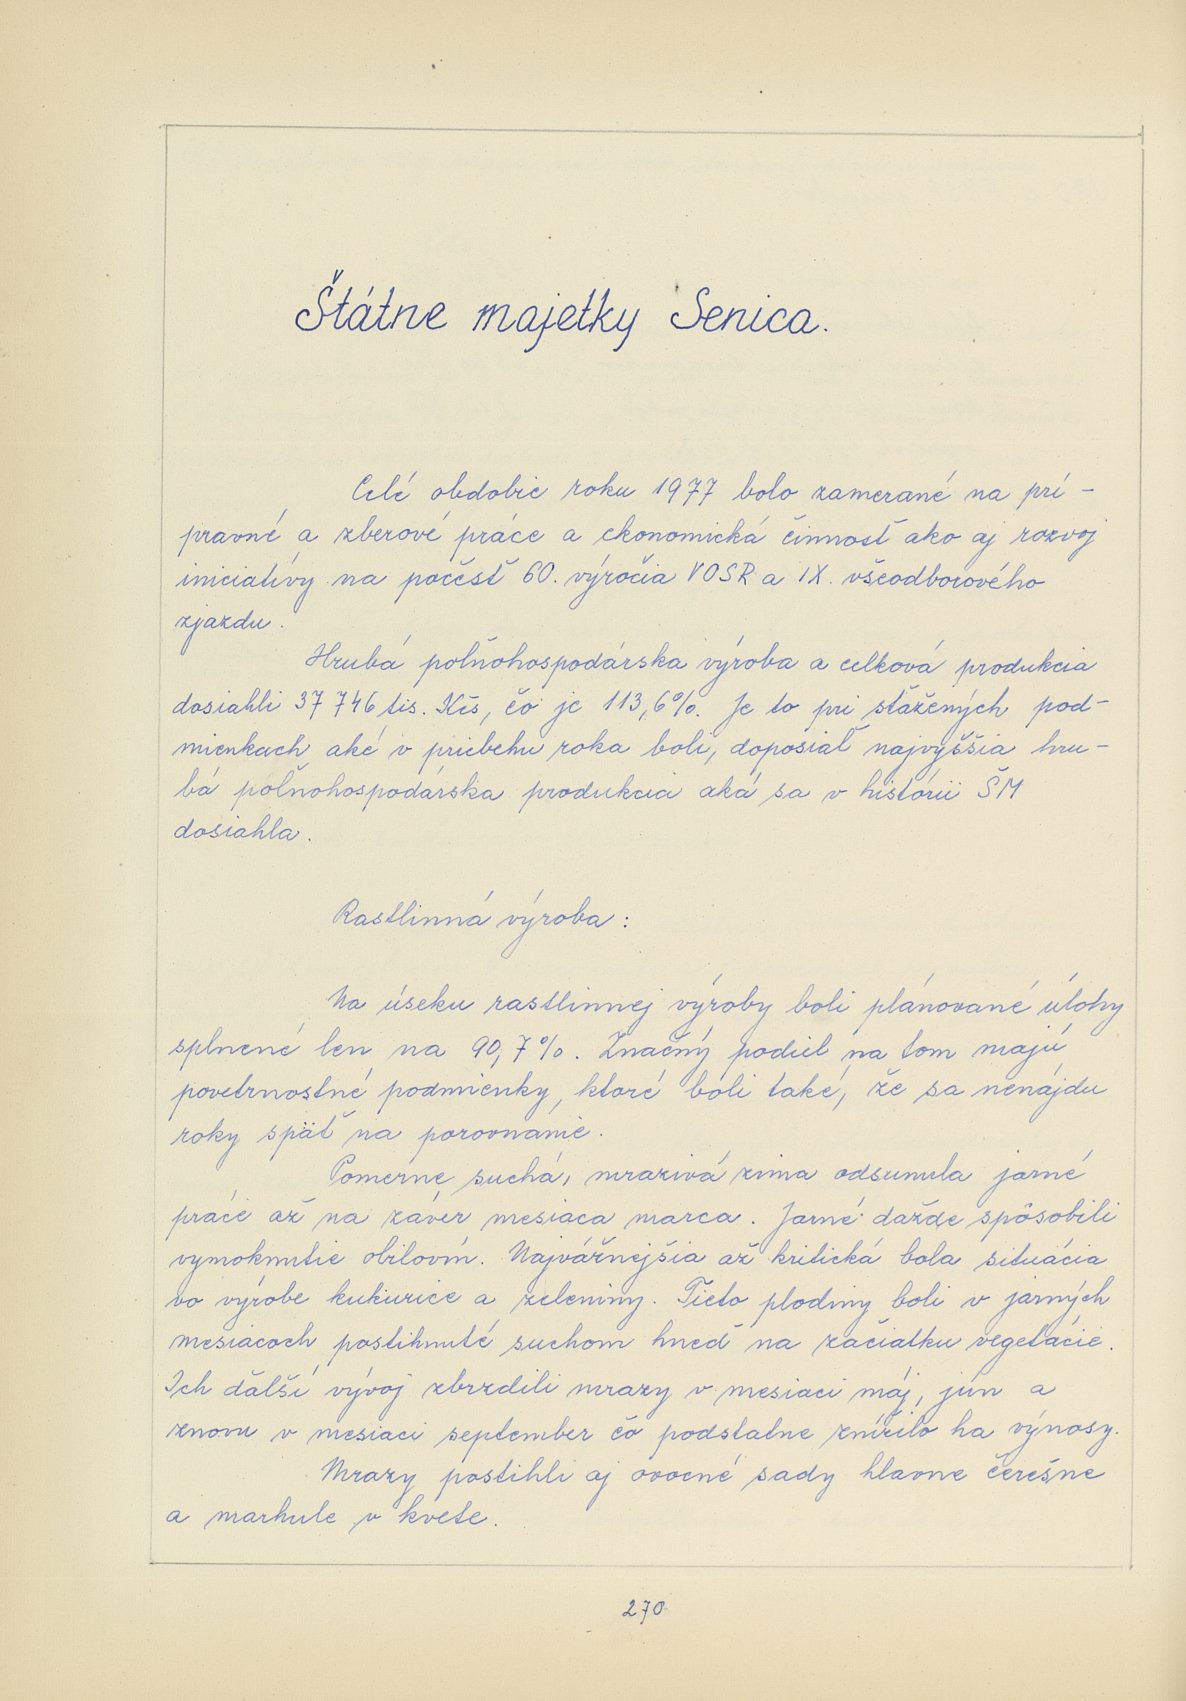 Štátne majetky Senica.
Celé obdobie roku 1977 bolo zamerané na prí-
pravné a zberové práce a ekonomická činnosť ako aj rozvoj
iniciatívy na počesť 60. výročia VOSR a IX. všeodborového
zjazdu.
Hrubá poľnohospodárska výroba a celková produkcia
dosiahli 37 746 tis. Kčs, čo je 113,6%. Je to pri sťažených pod-
mienkach aké v priebehu roka boli, doposiaľ najvyššia hru-
bá poľnohospodárska produkcia aká sa v histórii ŠM
dosiahla.
Rastlinná výroba:
Na úseku rastlinnej výroby boli plánované úlohy
splnené len na 90,7%. Značný podiel na tom majú
povetrnostné podmienky, ktoré boli také, že sa nenájdu
roky späť na porovnanie.
Pomerne suchá, mrazivá zima odsunula jarné
práce až na záver mesiaca marca. Jarné dažde spôsobili
vymoknutie obilovín. Najvážnejšia až kritická bola situácia
vo výrobe kukurice a zeleniny. Tieto plodiny boli v jarných
mesiacoch postihnuté suchom hneď na začiatku vegetácie.
Ich ďalší vývoj zbrzdili mrazy v mesiaci máj, jún a
znovu v mesiaci september čo podstatne znížilo ha výnosy.
Mrazy postihli aj ovocné sady hlavne čerešne
a marhule v kvete.
270